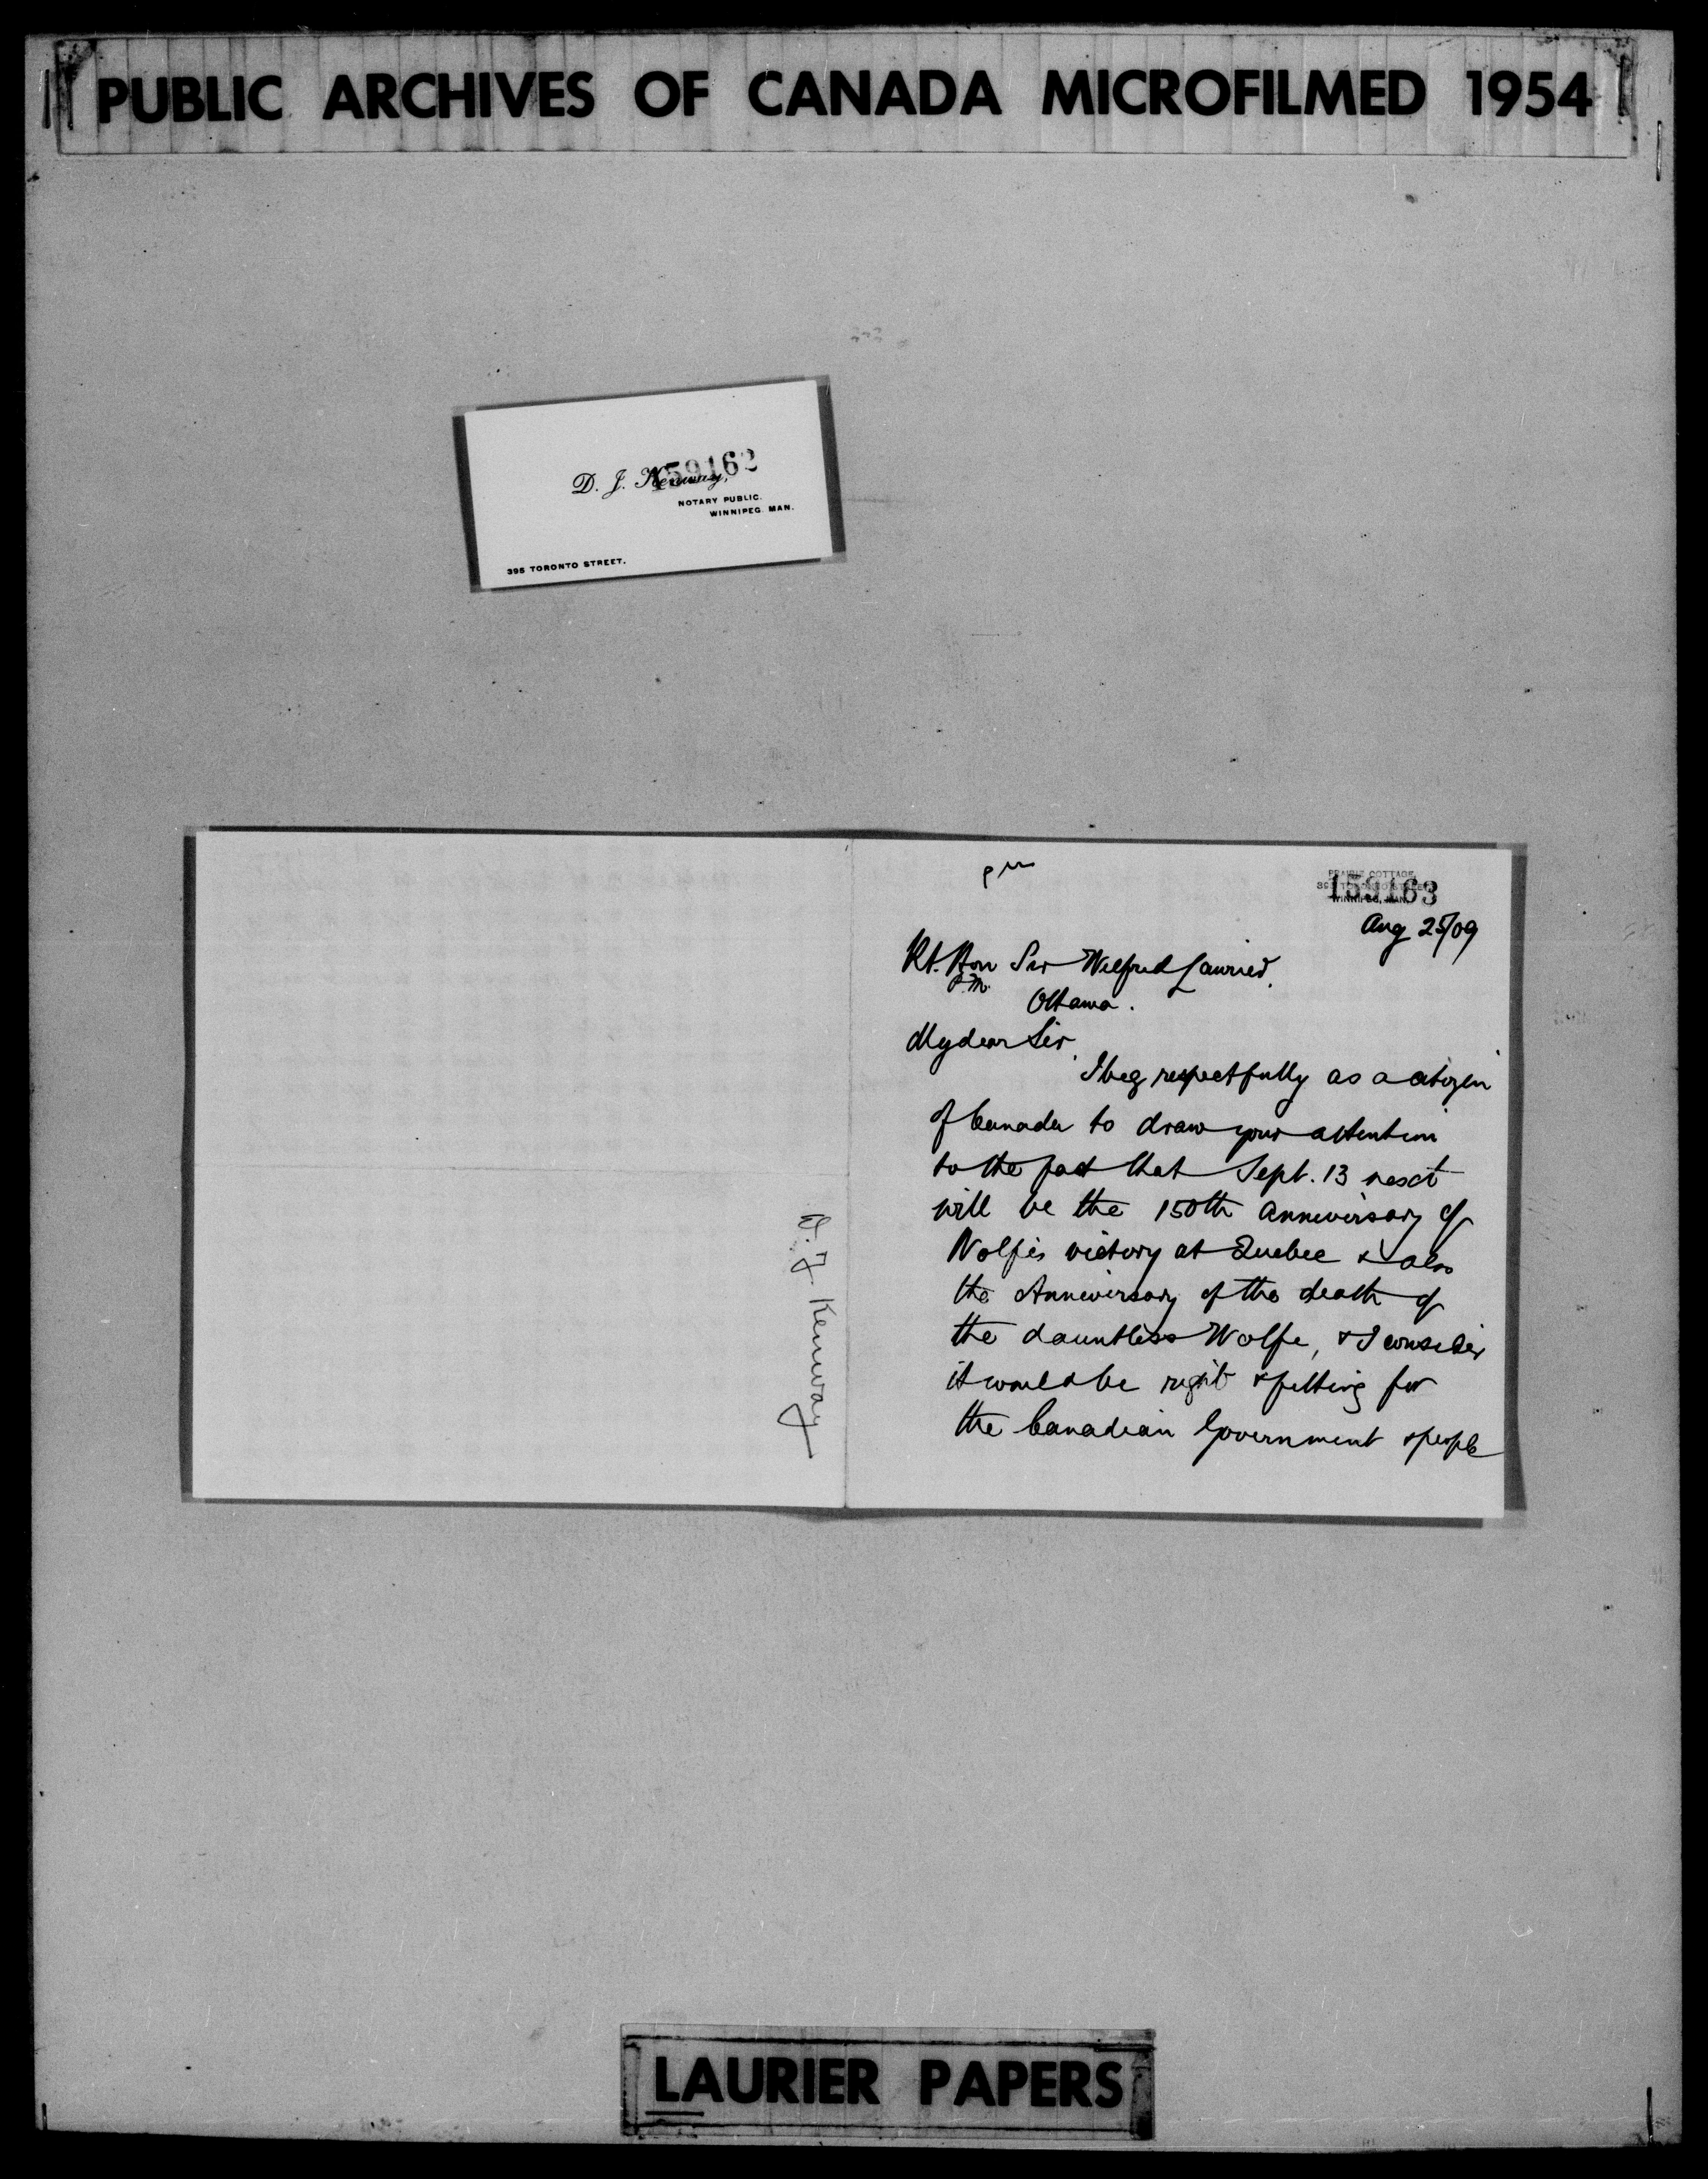 PUBLIC ARCHIVES OF CANADA MICROFILMED 1954
159162
D. J. Kenway,
NOTARY PUBLIC.
WINNIPEG. MAN.
395 TORONTO STREET.
PRAIRIE COTTAGE,
WINNIPEG, MAN.
159163
Aug 25/09
Rt. Hon Sir Wilfred Laurier,
P.M.
Ottawa.
My dear Sir,
I beg respectfully as a citizen
of Canada to draw your attention
to the fact that Sept. 13 next
will be the 150th anniversary of
Wolfe's victory at Quebec & also
the Anniversary of the death of
the dauntless Wolfe, & I consider
it would be right & fitting for
the Canadian Government & people
D. J. Kenway
LAURIER PAPERS